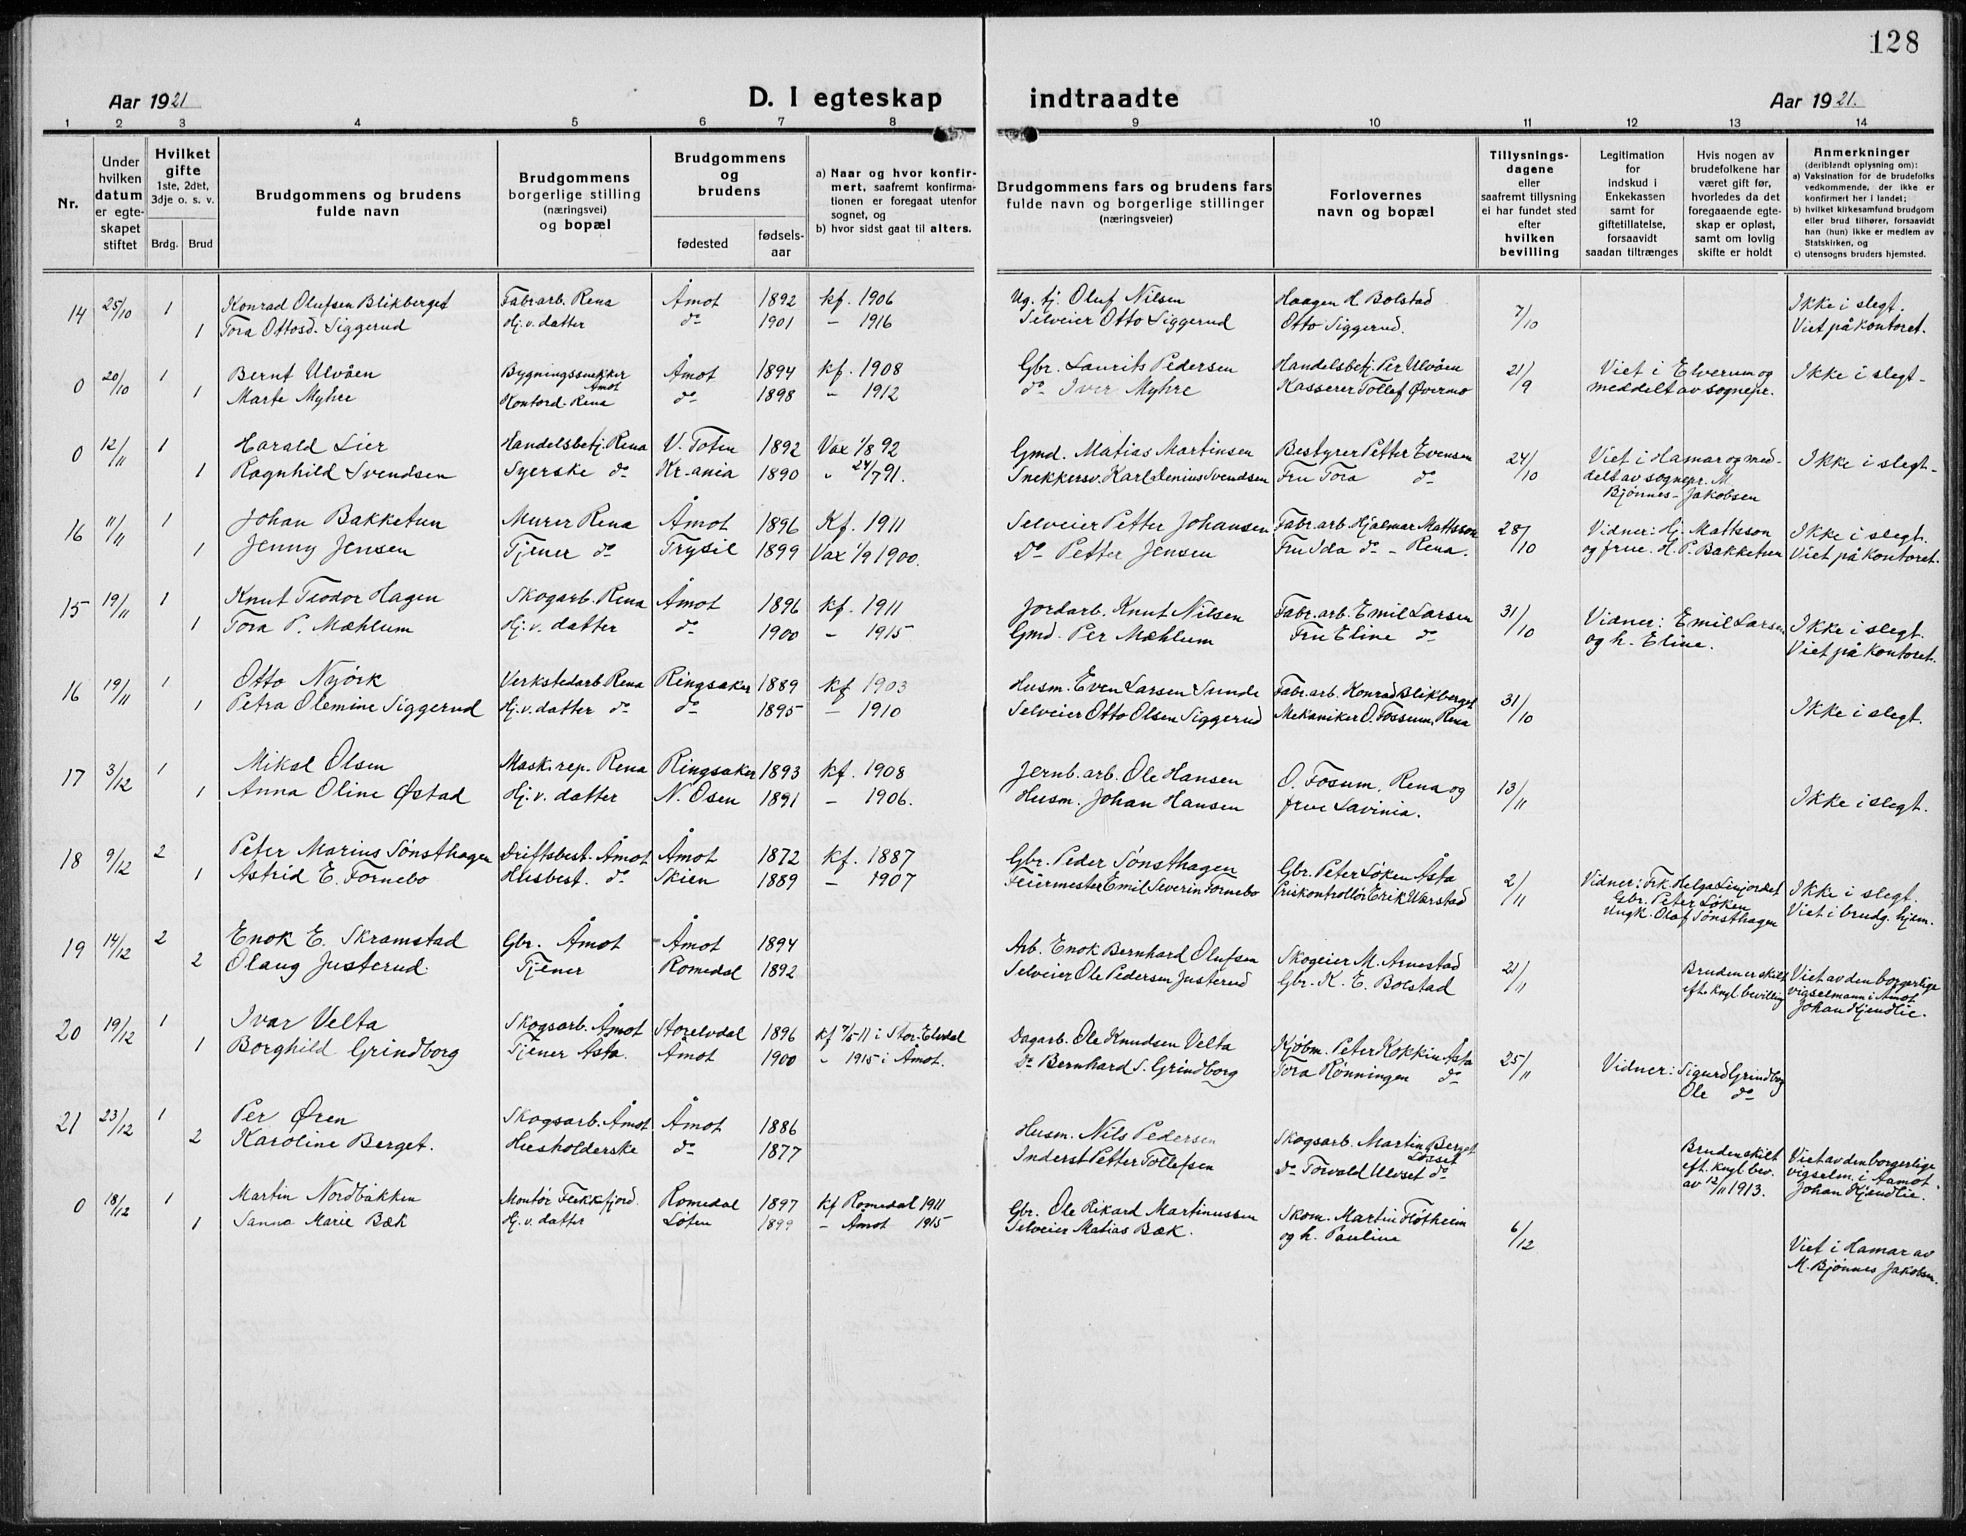 128
Aar 1921
D. I egteskap indtraadte
Aar 1921.
1 2 3 4 5 6 7 8 9 10 11 12 13 14
Nr.
Under hvilken datum er egte-skapet stiftet
Hvilket gifte 1ste, 2det, 3dje o. s. v.
Brdg. Brud
Brudgommens og brudens fulde navn
Brudgommens borgerlige stilling (næringsvei) og bopæl
Brudgommens og brudens
fødested
fødsels-aar
a) Naar og hvor konfir-mert, saafremt konfirma-tionen er foregaat utenfor sognet, og
b) hvor sidst gaat til alters.
Brudgommens fars og brudens fars fulde navn og borgerlige stillinger (næringsveier)
Forlovernes navn og bopæl
Tillysnings-dagene eller saafremt tillysning ei har fundet sted efter hvilken bevilling
Legitimation for indskud i Enkekassen samt for giftetillatelse, forsaavidt saadan tiltrænges
Hvis nogen av brudefolkene har været gift før, hvorledes da det foregaaende egte-skap er opløst, samt om lovlig skifte er holdt
Anmerkninger (deriblandt oplysning om):
a) Vaksination for de brudefolks vedkommende, der ikke er konfirmert her i landet;
b) hvilket kirkesamfund brudgom eller brud tilhører, forsaavidt han (hun) ikke er medlem av Statskirken, og
c) utensogns bruders hjemsted.
14 25/10 1 Konrad Olufsen Blikberget Fabr.arb. Rena Åmot 1892 kf. 1906 Ug. tj. Oluf Nilsen Haagen H. Bolstad 7/10 Ikke i slegt.
1 Tora Ottosd. Siggerud Hj. v. datter do 1901 – 1916 Selveier Otto Siggerud Otto Siggerud. Viet på kontoret.
0 20/10 1 Bernt Ulvåen Bygningssnekker Åmot Åmot 1894 kf. 1908 Gbr. Laurits Pedersen Handelsbetj. Per Ulvåen 21/9 Viet i Elverum og Ikke i slegt
1 Marte Myhre Kontord. Rena do 1898 – 1912 do Iver Myhre Kasserer Tollef Øvermo meddelt av sognepr.
0 12/11 1 Harald Lier Handelsbetj. Rena V. Toten 1892 Vax 1/8 92 Gmd. Matias Martinsen Bestyrer Petter Evensen 24/10 Viet i Hamar og med- Ikke i slegt
1 Ragnhild Svendsen Syerske do Kr.ania 1890 " 24/7 91. Snekkersv. Karl Denius Svendsen Fru Tora do delt av sognepr. M.
Bjønnes-Jakobsen
16 11/11 1 Johan Bakketun Murer Rena Åmot 1896 Kf. 1911 Selveier Petter Johansen Fabr.arb. Hjalmar Mattsson 28/10 Vidner: Hj. Mattsson Ikke i slegt.
1 Jenny Jensen Tjener do Trysil 1899 Vax 1/9 1900. Do Petter Jensen Fru Ida do – Rena. og frue. H. P. Bakketun Viet på kontoret.
15 19/11 1 Knut Teodor Hagen Skogarb. Rena Åmot 1896 kf. 1911 Jordarb. Knut Nilsen Fabr. arb. Emil Larsen 31/10 Vidner: Emil Larsen Ikke i slegt.
1 Tora P. Mæhlum Hj. v. datter do 1900 – 1915 Gmd. Per Mæhlum Fru Eline do og h. Eline. Viet på kontoret.
16 19/11 1 Otto Nyjork Verkstedarb. Rena Ringsaker 1889 kf 1903 Husm. Even Larsen Sunde Fabr. arb. Konrad Blikberget 31/10
1 Petra Olemine Siggerud Hj. v. datter do do 1895 – 1910 Selveier Otto Olsen Siggerud Mekaniker O. Fossum, Rena Ikke i slegt.
17 3/12 1 Mikal Olsen Mask.rep. Rena Ringsaker 1893 kf. 1908 Jernb. arb. Ole Hansen O. Fosum, Rena og 13/11
1 Anna Oline Østad Hj. v. datter N. Osen 1891 – 1906. Husm. Johan Hansen frue Lavinia. Ikke i slegt.
18 9/12 2 Peter Marius Sønsthagen Driftsbest. Åmot Åmot 1872 kf. 1887 Gbr. Peder Sønsthagen Gbr. Peter Løken Åsta 2/11 Vidner: Frk. Helga Linjordet Ikke i slegt.
1 Astrid E. Fornebo Husbest. do Skien 1889 – 1907 Feiermester Emil Severin Fornebo Priskontrollør Erik Warstad Gbr. Peter Løken Viet i brudg. hjem.
Ungk. Olaf Sønsthagen
19 14/12 2 Enok E. Skramstad Gbr. Åmot Åmot 1894 Arb. Enok Bernhard Olufsen Skogeier M. Arnestad 21/11 Bruden er skilt Viet av den borgerlige
2 Olaug Justerud. Tjener Romedal 1892 Selveier Ole Pedersen Justerud Gbr. K. E. Bolstad eft. kngl. bevilling vigselmann i Åmot
Johan Kjendlie.
20 19/12 1 Ivar Velta Skogsarb. Åmot Storelvdal 1896 kf 7/5-11 i Stor-Elvdal Dagarb. Ole Knudsen Velta Kjøbm. Peter Kokkin Åsta 25/11 Vidner: Sigurd Grindborg
1 Borghild Grindborg Tjener Åsta. Åmot 1900 " 1915 i Åmot. Do Bernhard S. Grindborg Tora Rønningen do Ole do
21 23/12 1 Per Øren Skogsarb. Åmot Åmot 1886 Husm. Nils Pedersen Skogsarb. Martin Berget Løset Bruden skilt Viet av den borgerlige
2 Karoline Berget. Husholderske do 1877 Inderst Petter Tollefsen do Torvald Ulvset do eft. kngl. bev. vigselm. i Aamot.
av 12/11 1913. Johan Kjendlie.
0 18/12 1 Martin Nordbakken Montør Flekkefjord. Romedal 1897 kf Romedal 1911 Gbr. Ole Rikard Martinussen Skom. Martin Fløtheim 6/12
1 Sanna Marie Bæk Hj. v. datter Løten 1899 – Åmot 1915 Selveier Matias Bæk. og h. Pauline
Viet i Hamar av
M. Bjønnes Jakobsen.